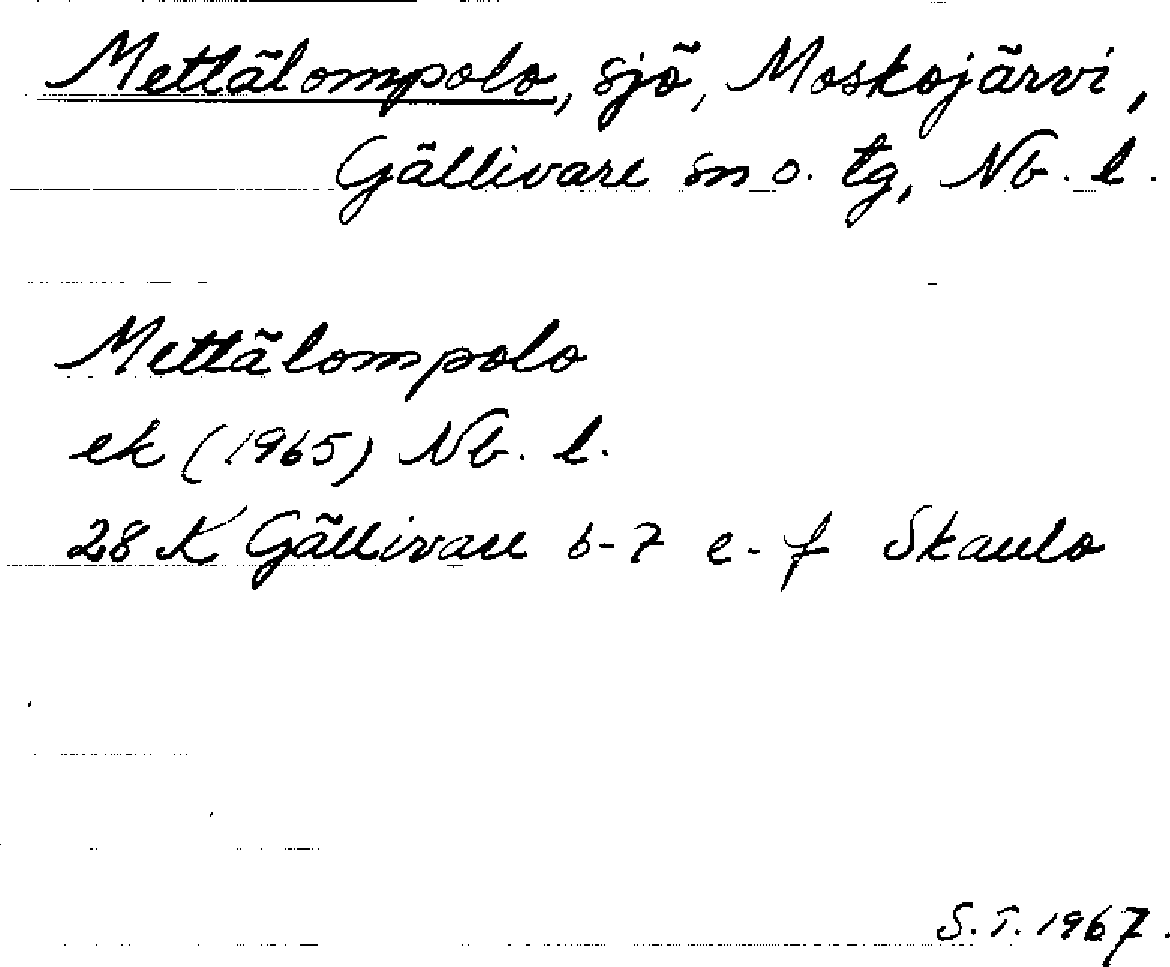 Mettälompolo, sjö, Moskojärvi,
Gällivare sn o. tg, Nb. l.
Mettälompolo
ek (1965) Nb. l.
28 K Gällivare 6-7 e-f Skaulo
S.T. 1967.